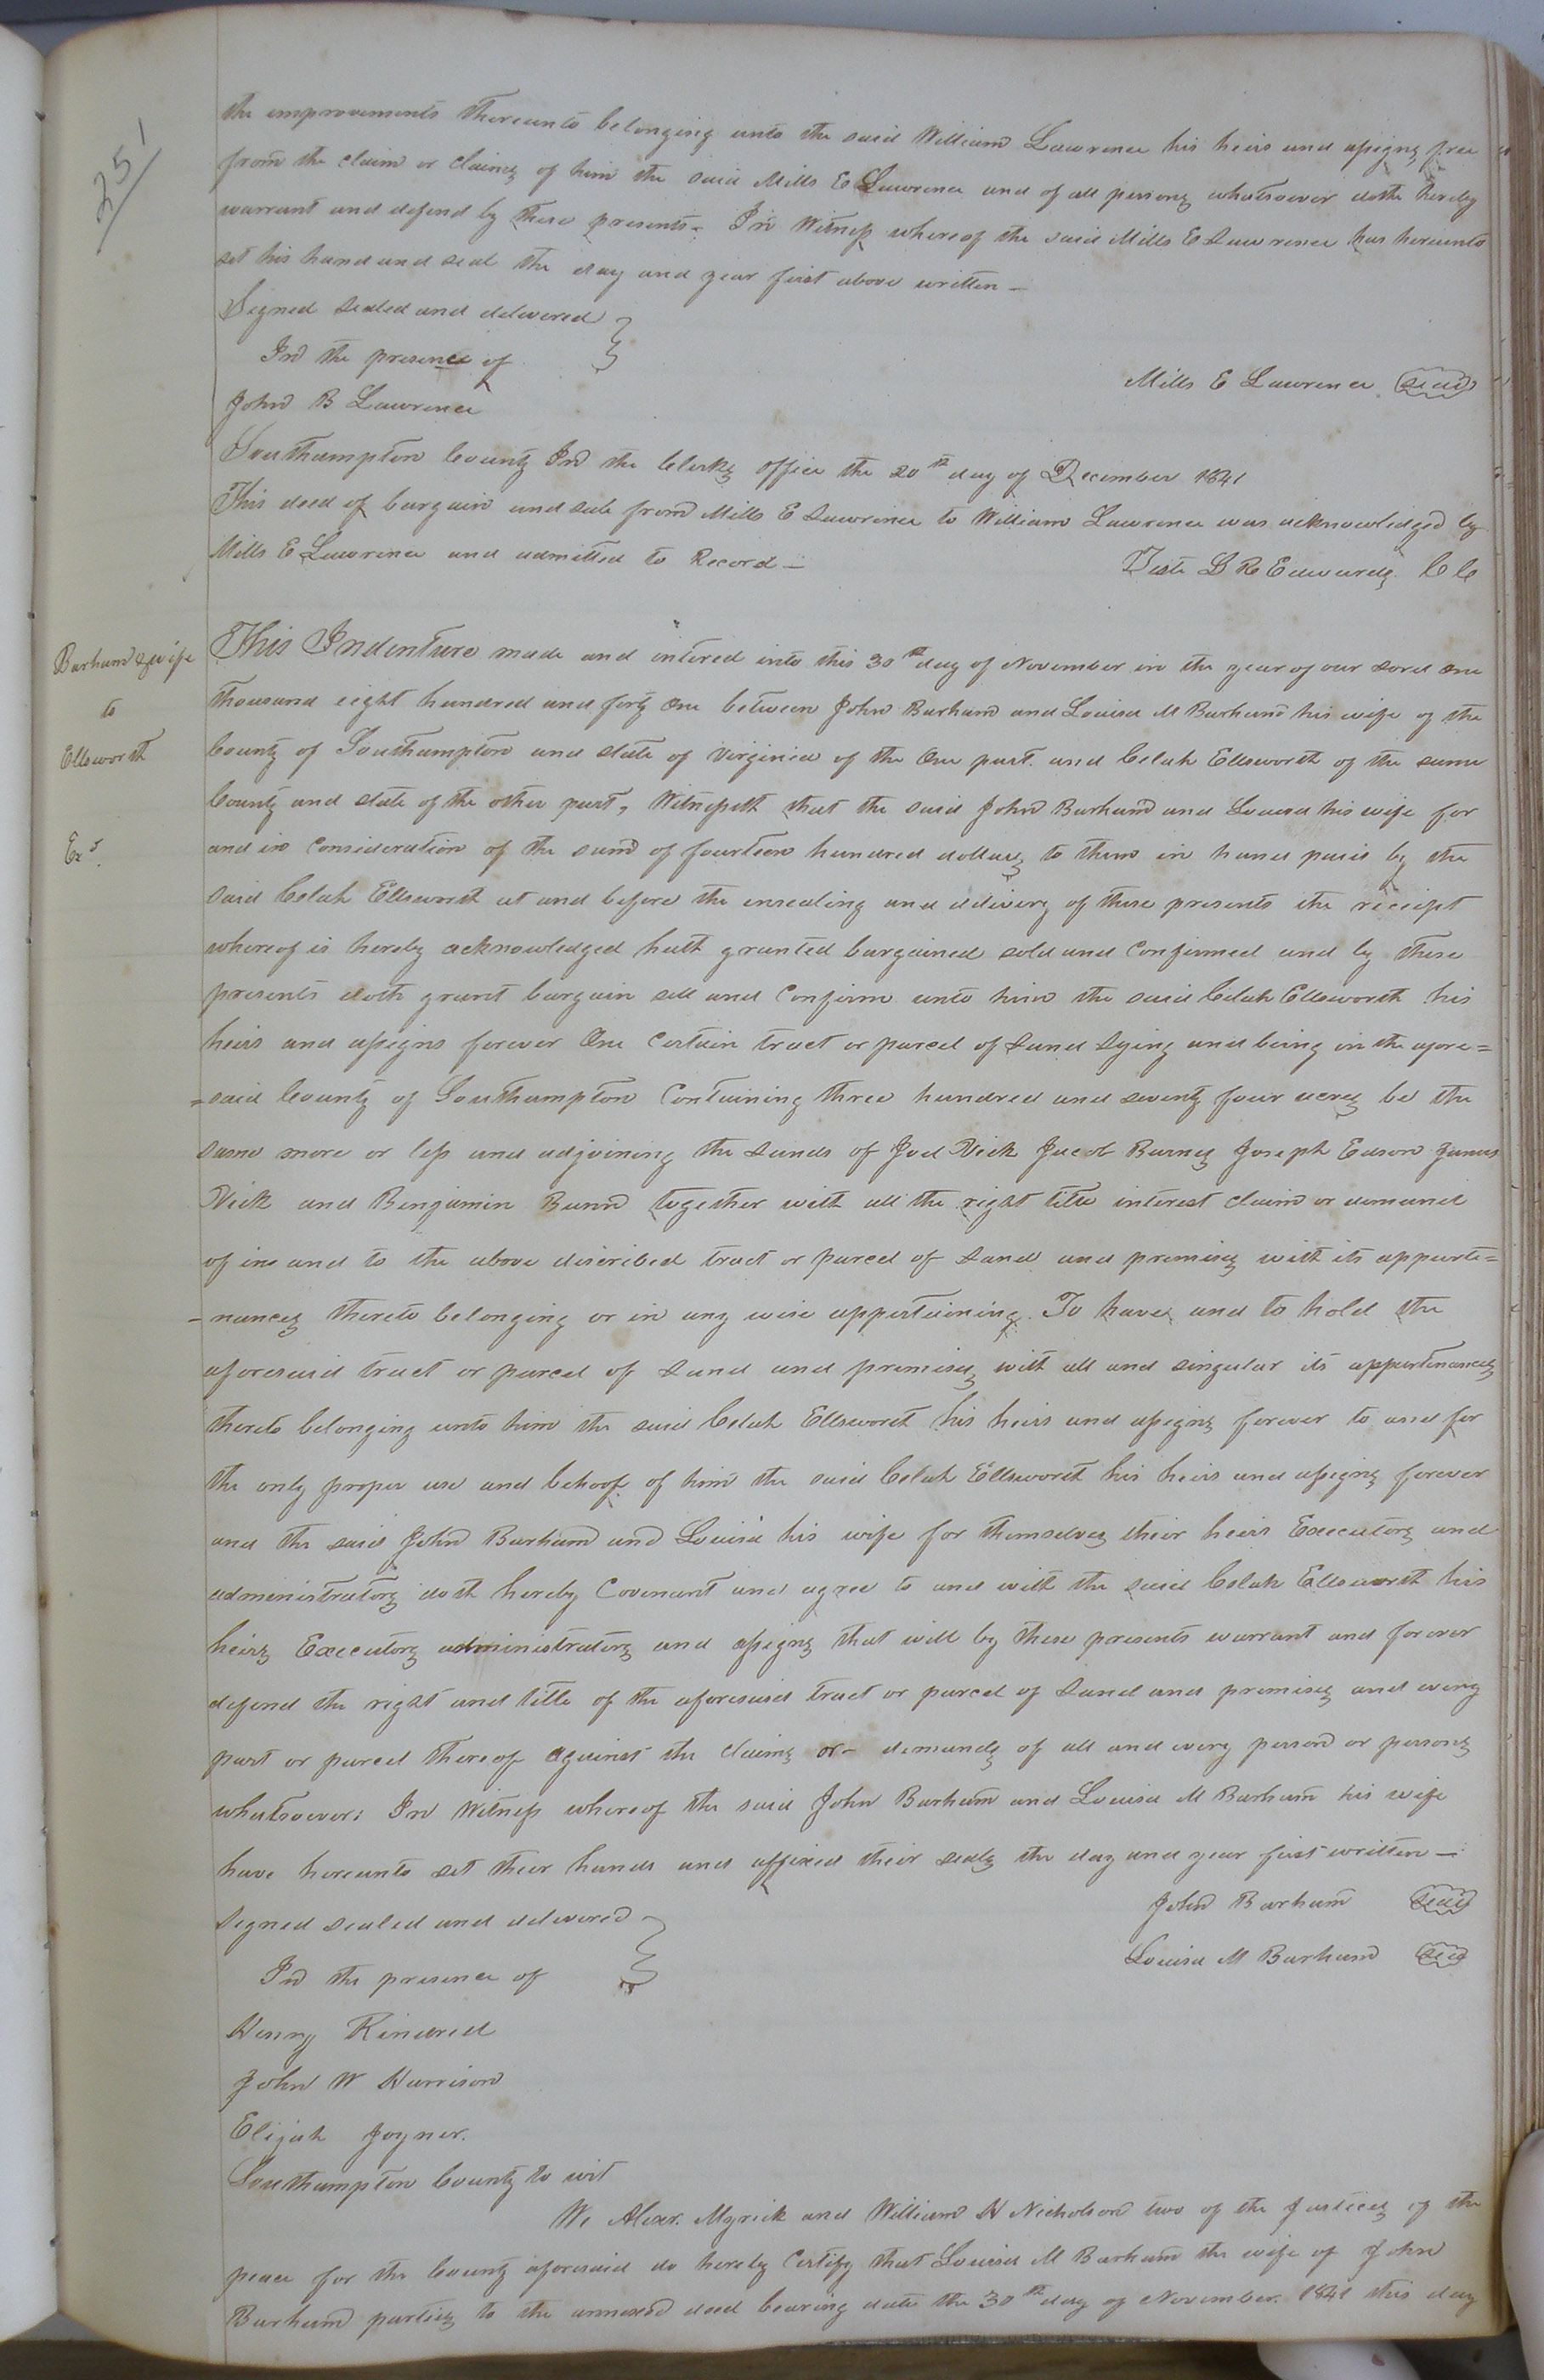 251
the improvements thereunto belonging unto the said William Lawrence his heirs and assigns free
from the claim or claims of him the said Mills E Lawrence and of all persons whatsoever doth hereby
warrant and defend by these presents. In Witness whereof the said Mills E Lawrence has hereunto
set his hand and seal the day and year first above written —
Signed sealed and delivered
In the presence of
Mills E Lawrence seal
John B Lawrence
Southampton County In the Clerks office the 20th day of December 1841
This deed of bargain and sale from Mills E Lawrence to William Lawrence was acknowledged by
Mills E Lawrence and admitted to Record —
Teste L R Edwards C C
Barham & wife
to
Ellsworth
Exd.
This Indenture made and intered into this 30th day of November in the year of our Lord One
thousand eight hundred and forty One between John Barham and Louisa M Barham his wife of the
County of Southampton and state of Virginia of the One part. and Celah Ellsworth of the same
County and state of the other part, Witnesseth that the said John Barham and Louisa his wife for
and in Consideration of the sum of fourteen hundred dollars to them in hand paid by the
said Celah Ellsworth at and before the ensealing and delivery of these presents the receipt
whereof is hereby acknowledged hath granted bargained sold and Confirmed and by these
presents doth grant bargain sell and Confirm unto him the said Celah Ellsworth his
heirs and assigns forever One Certain tract or parcel of Land Lying and being in the afore=
=said County of Southampton Containing three hundred and seventy four acres be the
same more or less and adjoining the Lands of Joel Vick Jacob Barnes Joseph Edson James
Vick and Benjamin Bunn together with all the right title interest claim or demand
of in and to the above discribed tract or parcel of Land and premises with its appurte=
-nances thereto belonging or in any wise appertaining. To have and to hold the
aforesaid tract or parcel of Land and premises with all and singular its appurtenances
thereto belonging unto him the said Celah Ellsworth his heirs and assigns forever to and for
the only proper use and behoof of him the said Celah Ellsworth his heirs and assigns forever
and the said John Barham and Louisa his wife for themselves their heirs Executors and
administrators doth hereby Covenant and agree to and with the said Celah Ellsworth his
heirs Executors administrators and assigns that will by these presents warrant and forever
defend the right and title of the aforesaid tract or parcel of Land and premises and every
part or parcel thereof against the claims or - demands of all and every person or persons
whatsoever; In Witness whereof the said John Barham and Louisa M Barham his wife
have hereunto set their hands and affixed their seals the day and year first written —
Signed sealed and delivered
John Barham seal
In the presence of
Louisa M Barham seal
Henry Kindred
John W Harrison
Elijah Joyner.
Southampton County to wit
We Alexr. Myrick and William H Nicholson two of the Justices of the
peace for the County aforesaid do hereby Certify that Louisa M Barham the wife of John
Barham parties to the annexed deed bearing date the 30th day of November. 1841 this day